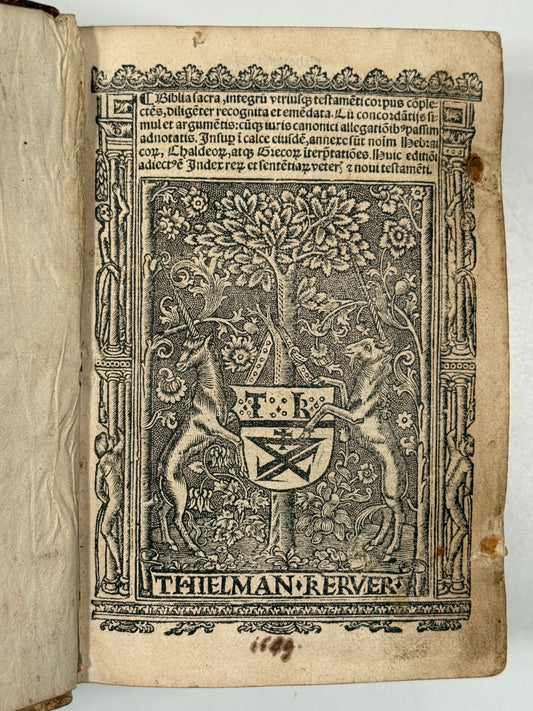 ¶Biblia sacra, integrũ vtriusq; testamẽti corpus cõple-
ctẽs, diligẽter recognita et emẽdata. Cũ concordãtijs si-
mul et argumẽtis: cũq; iuris canonici allegatiõib⁹ passim
adnotatis. Insuꝑ ĩ calce eiusdẽ, annexe sũt noĩm Hebrai-
coꝝ, Chaldeoꝝ, atq; Grecoꝝ ĩterp̃tatiões. Huic editiõi
adiect⁹ ẽ Index reꝝ et sentẽtiaꝝ veter; & noui testamẽti.
T K
THIELMAN·KERVER·